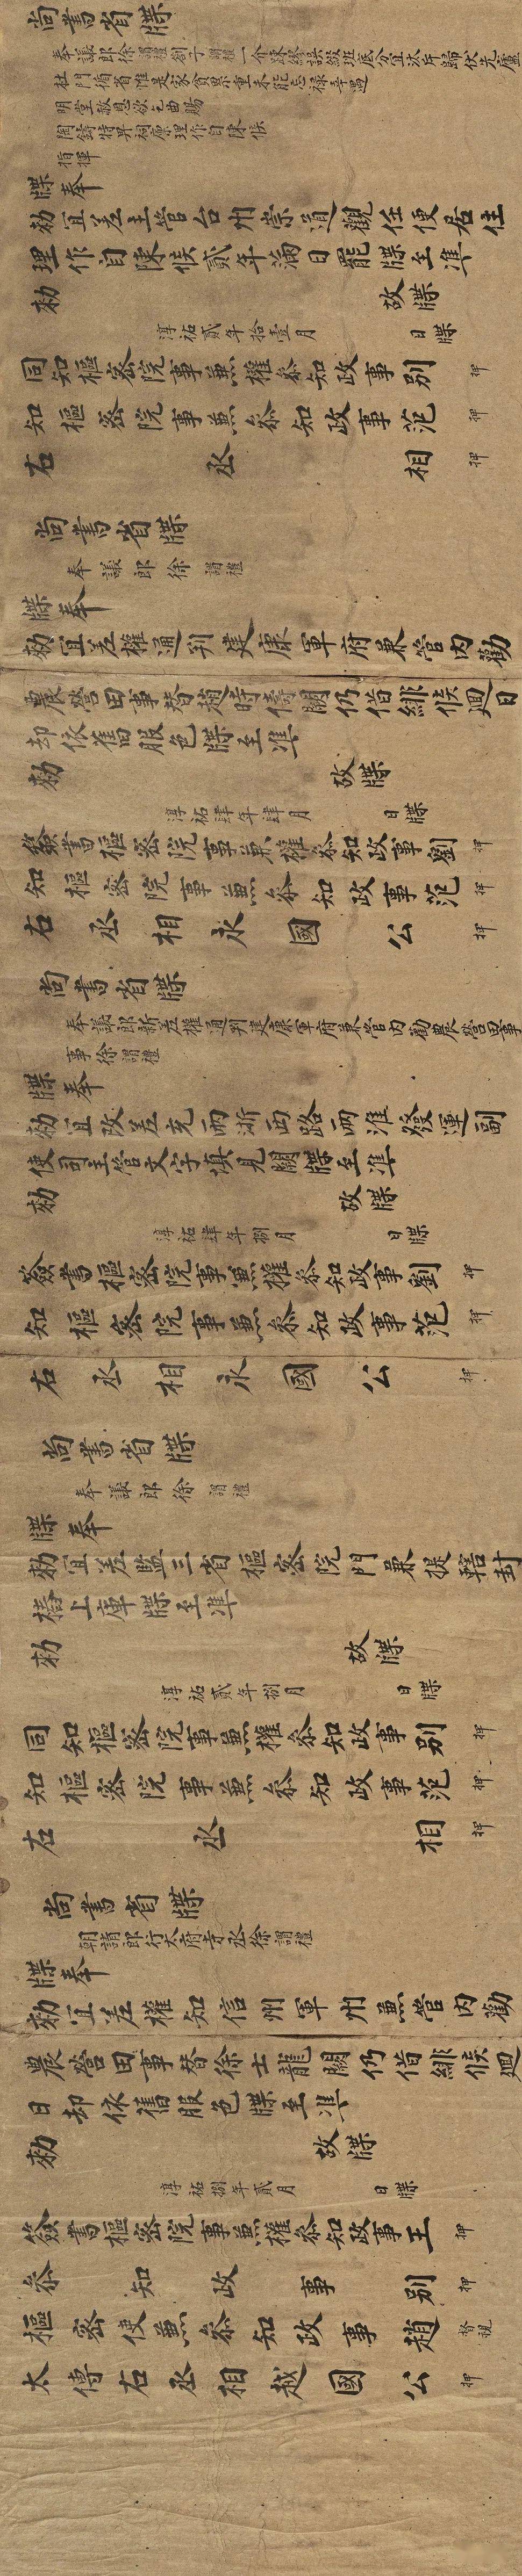 尚書省牒
奉議郎徐謂禮劄子謂禮一介疎繆誤綴班底分宜汰斥歸伏先廬
杜門循省惟是家貧累重未能忘祿幸遇
明堂赦恩欲乞曲賜
陶鑄特畀祠廩理作自陳候
指揮
牒奉
敕宜差主管台州崇道觀任便居住
理作自陳候貳年滿日罷牒至準
敕故牒
淳祐貳年拾壹月日牒
同知樞密院事兼權叅知政事別押
知樞密院事兼叅知政事范押
右丞相押
尚書省牒
奉議郎徐謂禮
牒奉
敕宜差權通判建康軍府兼管內勸
農營田事替趙時儔闕仍借緋候迴日
却依舊服色牒至準
敕故牒
淳祐肆年肆月日牒
簽書樞密院事兼權叅知政事劉押
知樞密院事兼叅知政事范押
右丞相永國公押
尚書省牒
奉議郎新差權通判建康軍府兼管內勸農營田事
事徐謂禮
牒奉
敕宜改差充兩浙西路兩淮發運副
使司主管文字填見闕牒至準
敕故牒
淳祐肆年捌月日牒
簽書樞密院事兼權叅知政事劉押
知樞密院事兼叅知政事范押
右丞相永國公押
尚書省牒
奉議郎徐謂禮
牒奉
敕宜差監三省樞密院門兼提轄封
樁上庫牒至準
敕故牒
淳祐貳年捌月日牒
同知樞密院事兼權叅知政事別押
知樞密院事兼叅知政事范押
右丞相押
尚書省牒
朝請郎行太府寺丞徐謂禮
牒奉
敕宜差權知信州軍州兼管內勸
農營田事替徐士龍闕仍借緋候迴
日却依舊服色牒至準
敕故牒
淳祐捌年貳月日牒
簽書樞密院事兼權叅知政事王押
叅知政事別押
樞密使兼叅知政事趙督視
太傅右丞相越國公押